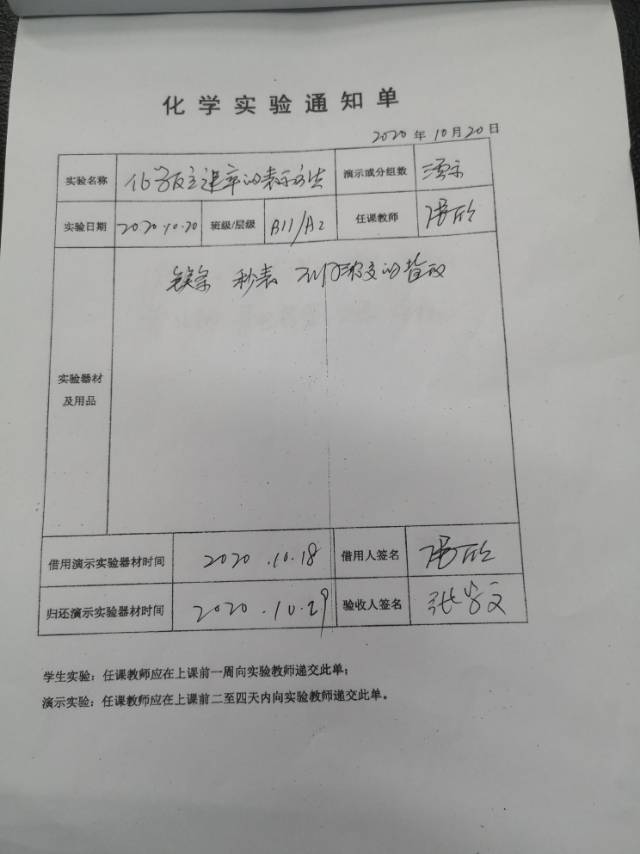 化学实验通知单
2020年10月20日
实验名称 化学反应速率的表示方法 演示或分组数 演示
实验日期 2020.10.20 班级/层级 B11/A2 任课教师
秒表 不同浓度的
实验器材
及用品
借用演示实验器材时间 2020.10.18 借用人签名
归还演示实验器材时间 2020.10.29 验收人签名 张
学生实验：任课教师应在上课前一周向实验教师递交此单；
演示实验：任课教师应在上课前二至四天内向实验教师递交此单。